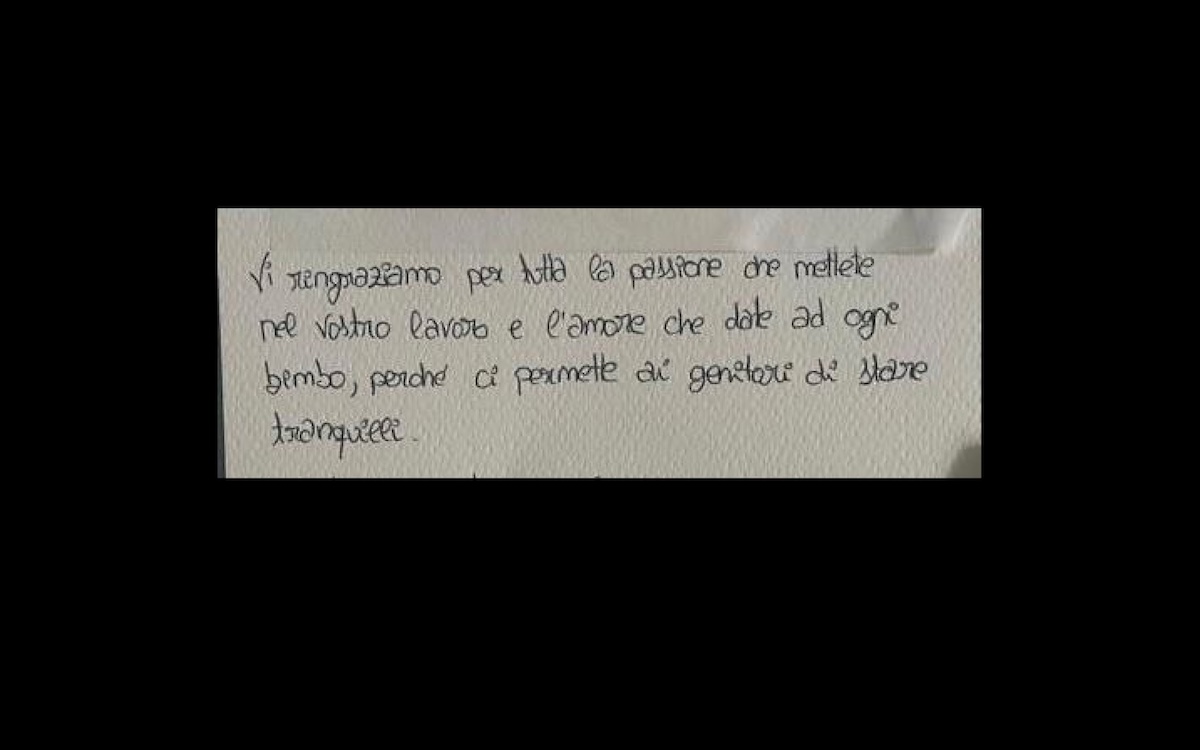 Vi ringraziamo per tutta la passione che mettete
nel vostro lavoro e l'amore che date ad ogni
bimbo, perché ci permette ai genitori di stare
tranquilli.